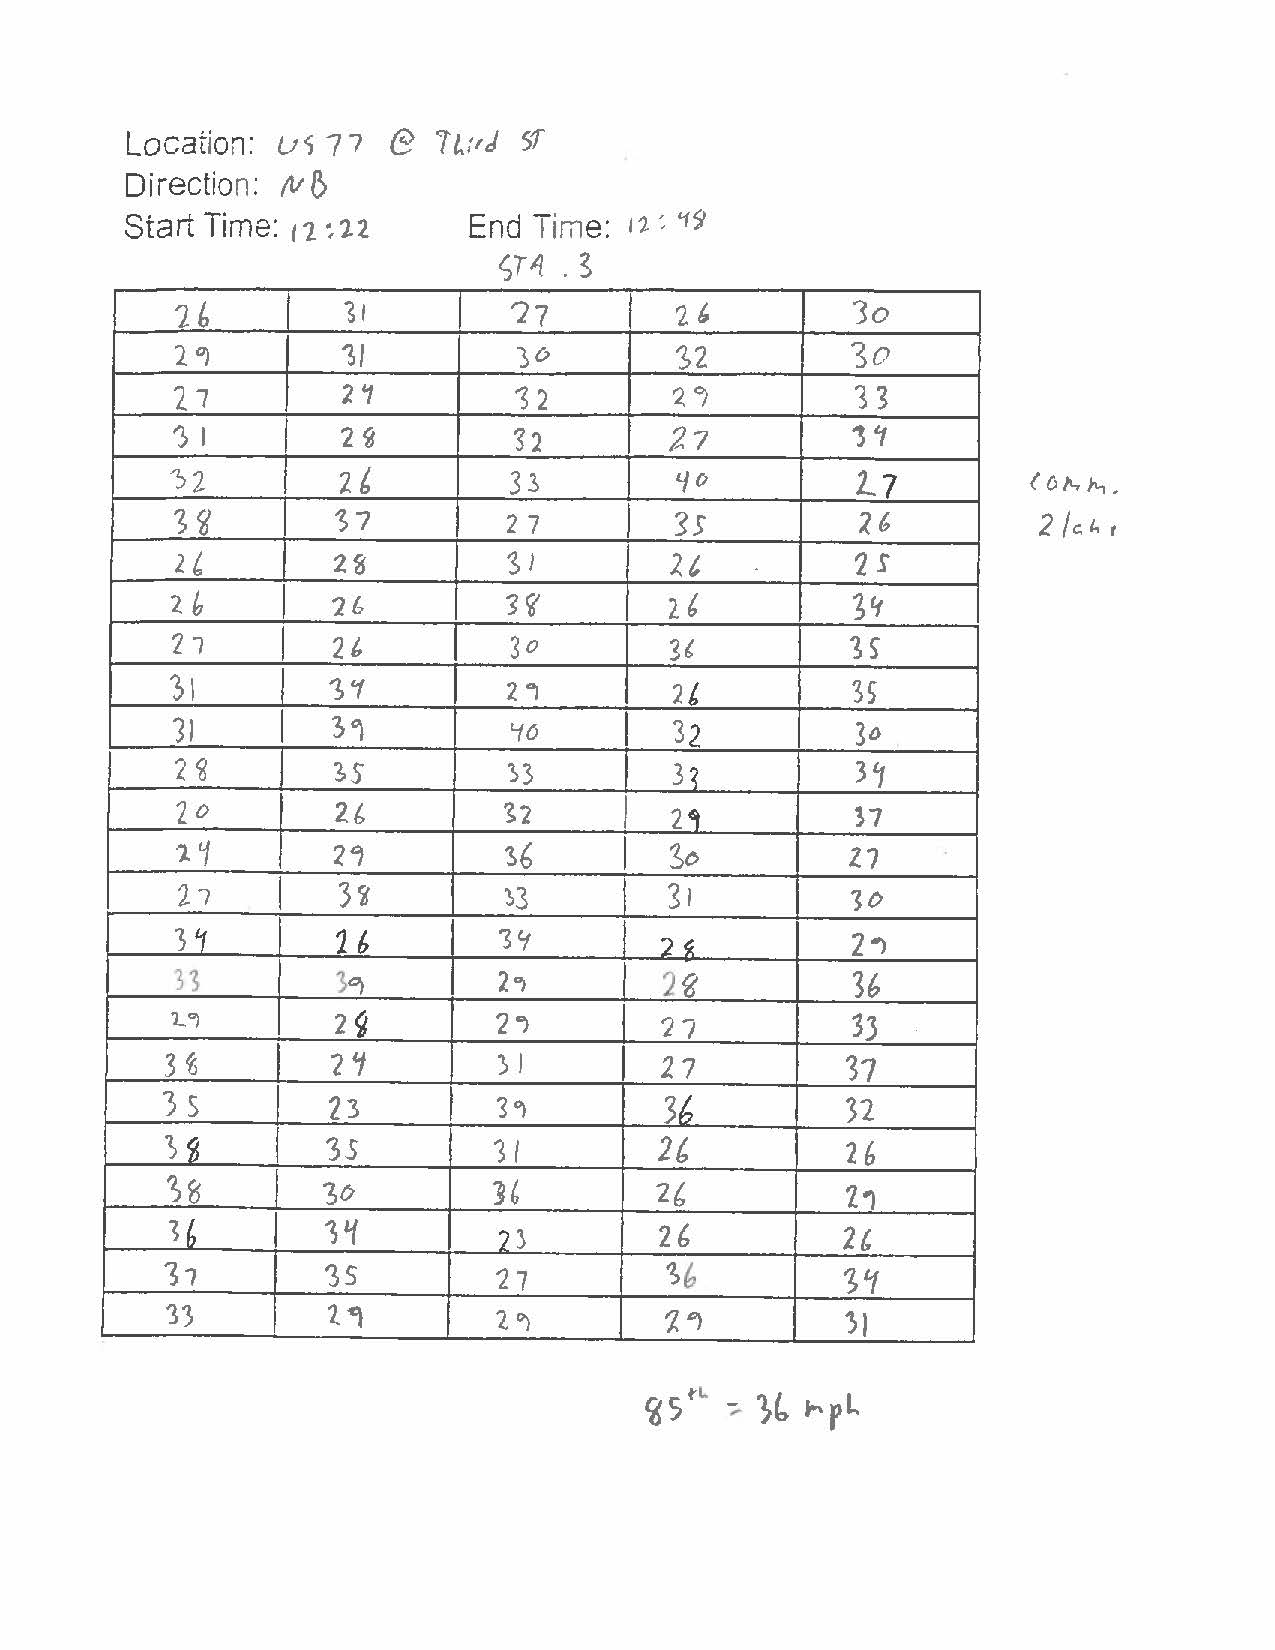 Location: US 77 @ Third ST
Direction: NB
Start Time: 12:22 End Time: 12:48
STA. 3
26 31 27 26 30
29 31 30 32 30
27 24 32 29 33
31 28 32 27 34
32 26 33 40 27 comm.
38 37 27 35 26 2 lane
26 28 31 26 25
26 26 38 26 34
27 26 30 36 35
31 34 29 26 35
31 39 40 32 30
28 35 33 33 34
20 26 32 29 37
24 29 36 30 27
27 38 33 31 30
34 26 34 28 29
33 39 29 28 36
29 28 29 27 33
38 24 31 27 37
35 23 39 36 32
38 35 31 26 26
38 30 36 26 29
36 34 23 26 26
37 35 27 36 34
33 29 29 29 31
85th = 36 mph